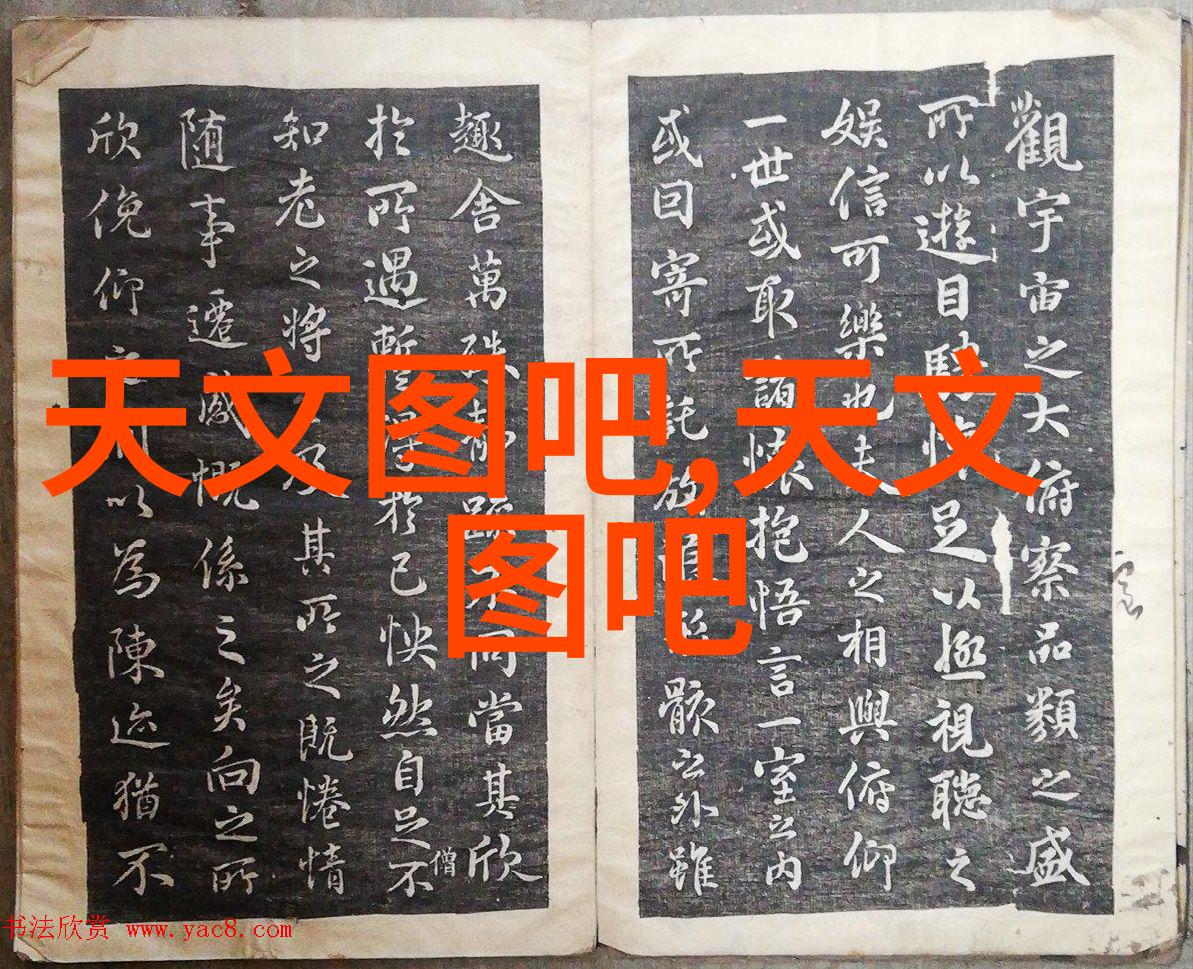 觀宇宙之大俯察品類之盛
所以遊目騁懷足以極視聽之
娛信可樂也夫人之相與俯仰
一世或取諸懷抱悟言一室之內
或因寄所託放骸之外雖
趣舍萬殊靜躁不同當其欣
於所遇暫得於己怏然自足不
僧
知老之將及其所之既惓情
随事遷感慨係之矣向之所
欣俛仰之以為陳迹猶不
天文图吧,天文
图吧
书法欣赏 www.yac8.com